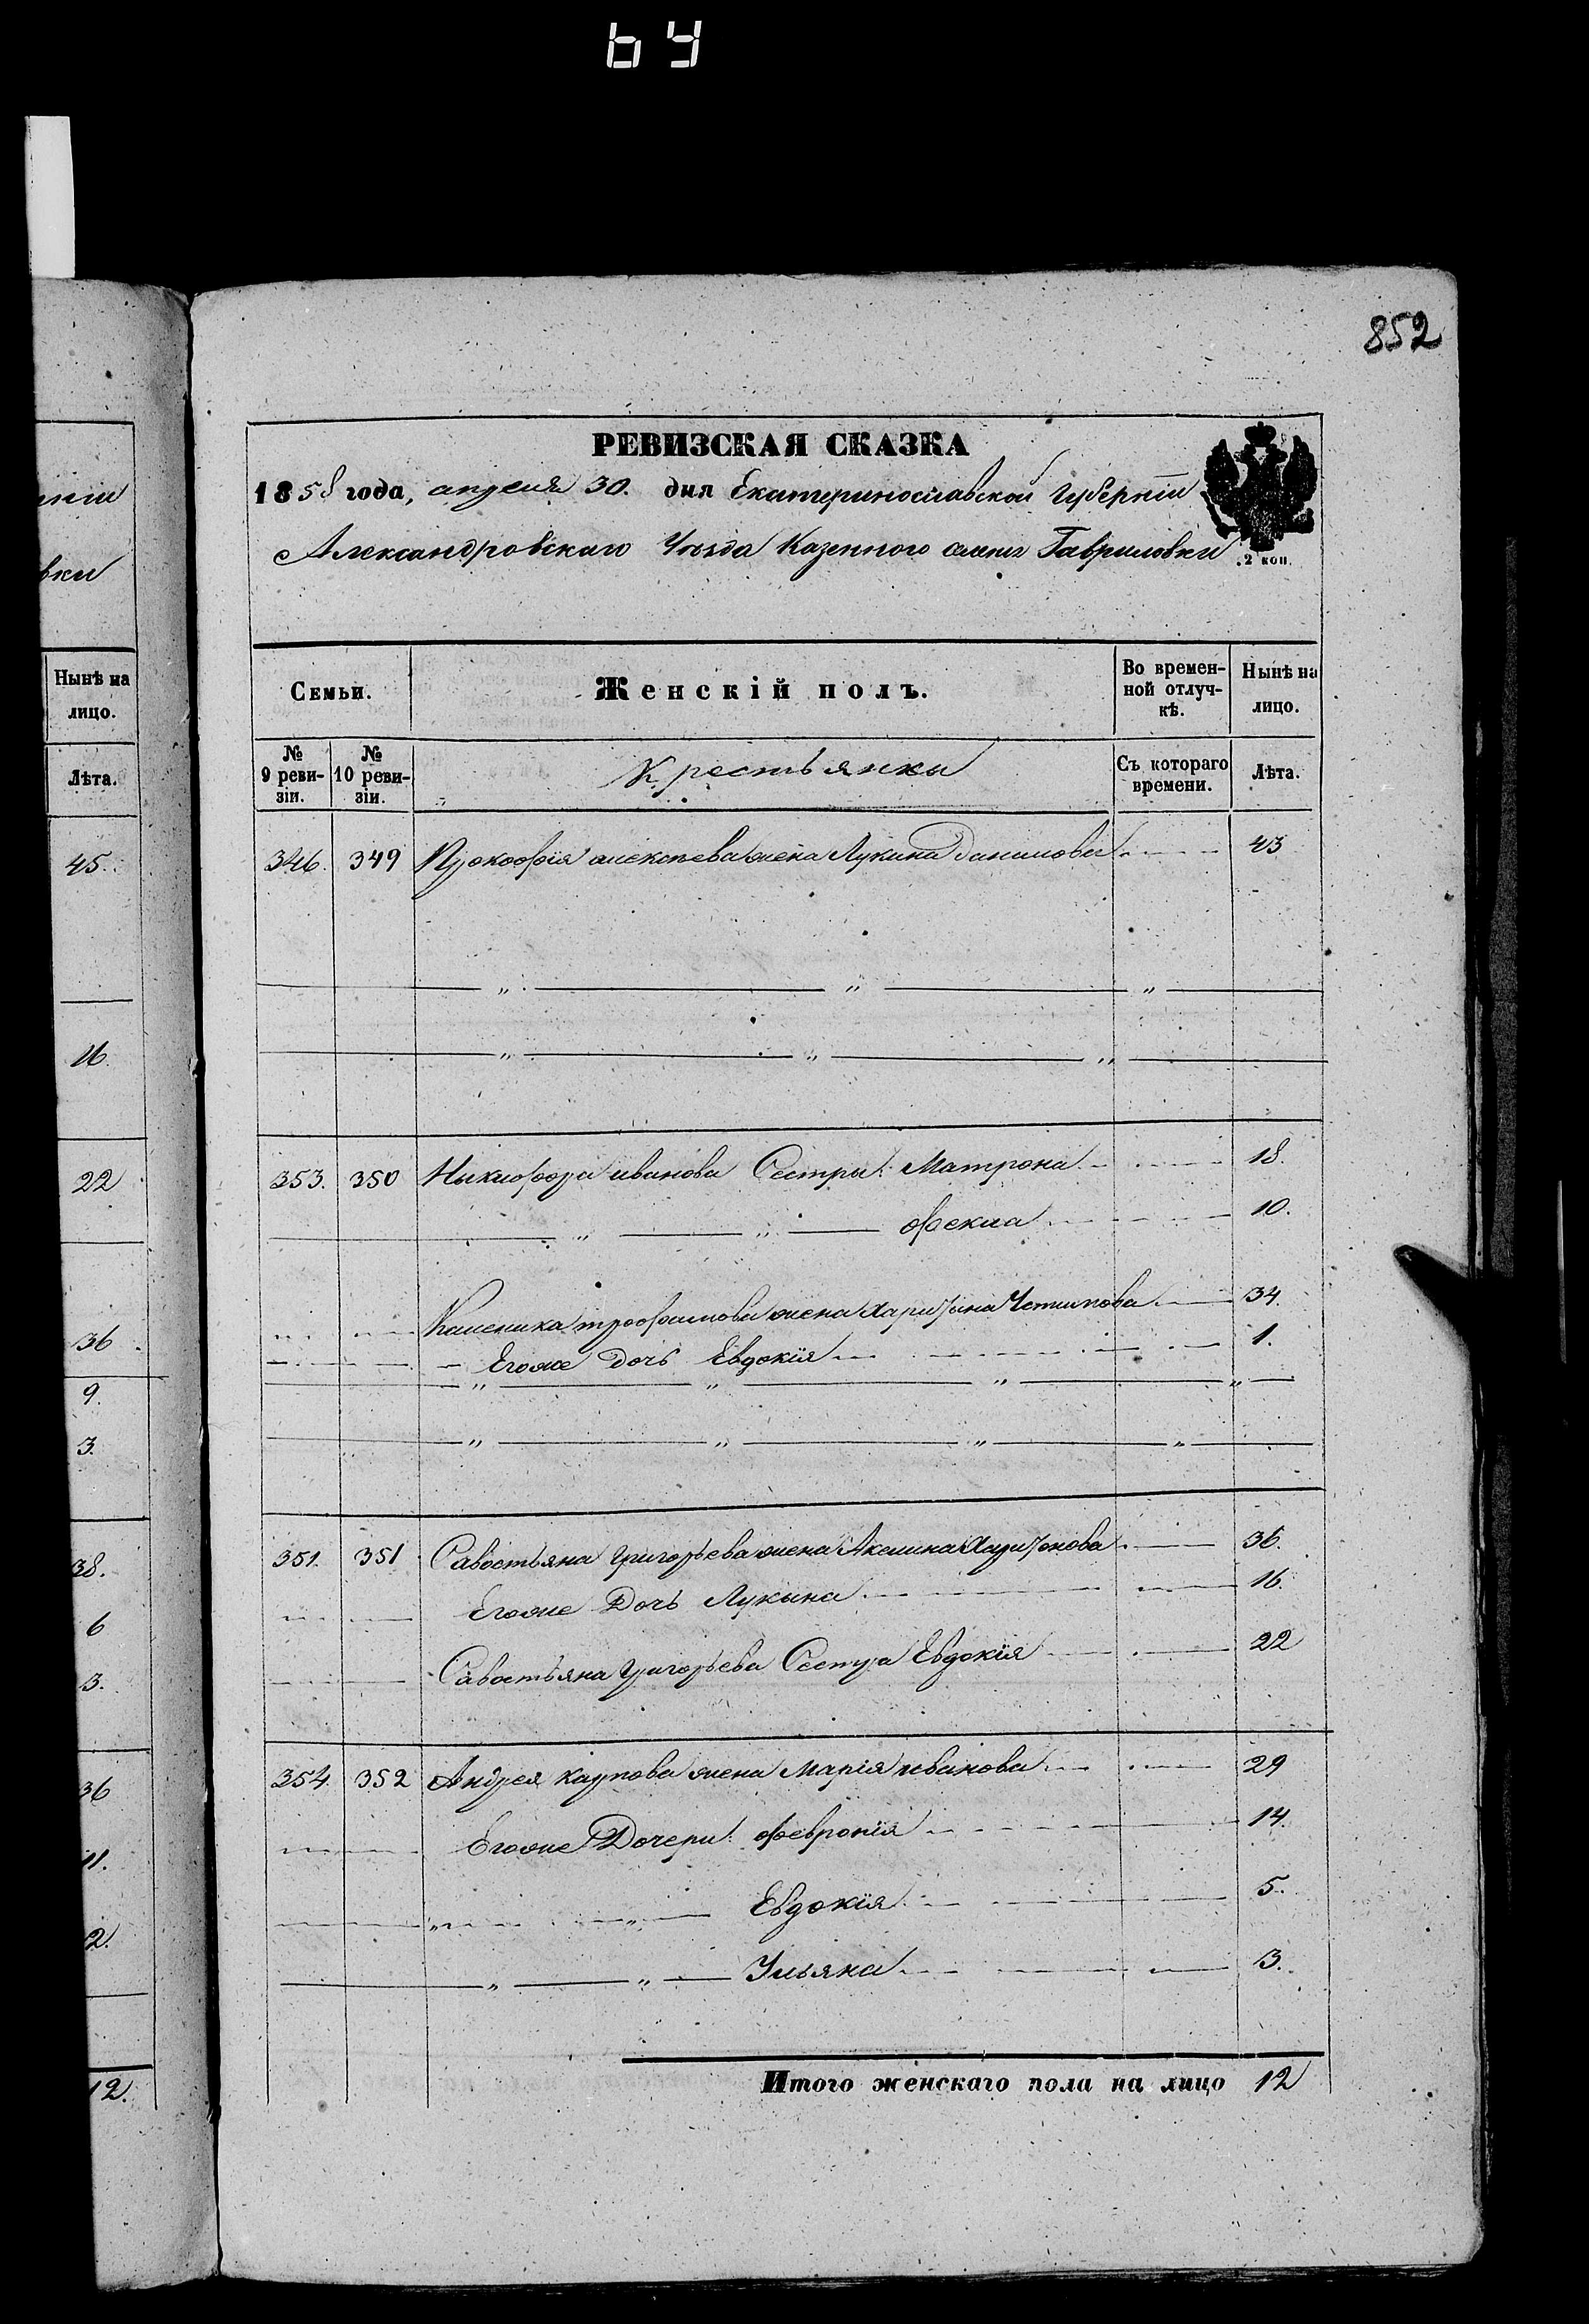 64
852
РЕВИЗСКАЯ СКАЗКА
1858 года, апреля 30. дня Екатеринославской Губерніи
Александровскаго Уѣзда Казенного Гавриловки
2 коп.
Семьи.
Женскій полъ.
Во времен-
ной отлуч-
кѣ.
Нынѣ на
лицо.
№
9 реви-
зіи.
№
10 реви-
зіи.
Крестьянки
Съ котораго
времени.
Лѣта.
346. 349 Прокофія алексѣева жена Лукина Данилова 43
353. 350 Никифора иванова Сестры: Матрона 18.
" " фекла 10.
трофимова жена Харитина 34.
Егоже Дочь Евдокія 1.
351. 351 Савостьяна Григорьева жена Акилина Харитонова 36.
Егоже Дочь Лукына 16.
Савостьяна Григорьева Сестра Евдокія 22
354. 352 Андрея карпова жена Марія иванова 29
Егоже Дочери: февронія 14.
" " Евдокія 5.
" " Ульяна 3.
Итого женскаго пола на лицо 12
ніи
вки
Нынѣ на
лицо.
Лѣта.
45.
16.
22
36
9.
3.
38.
6
3.
36
11.
2.
12.